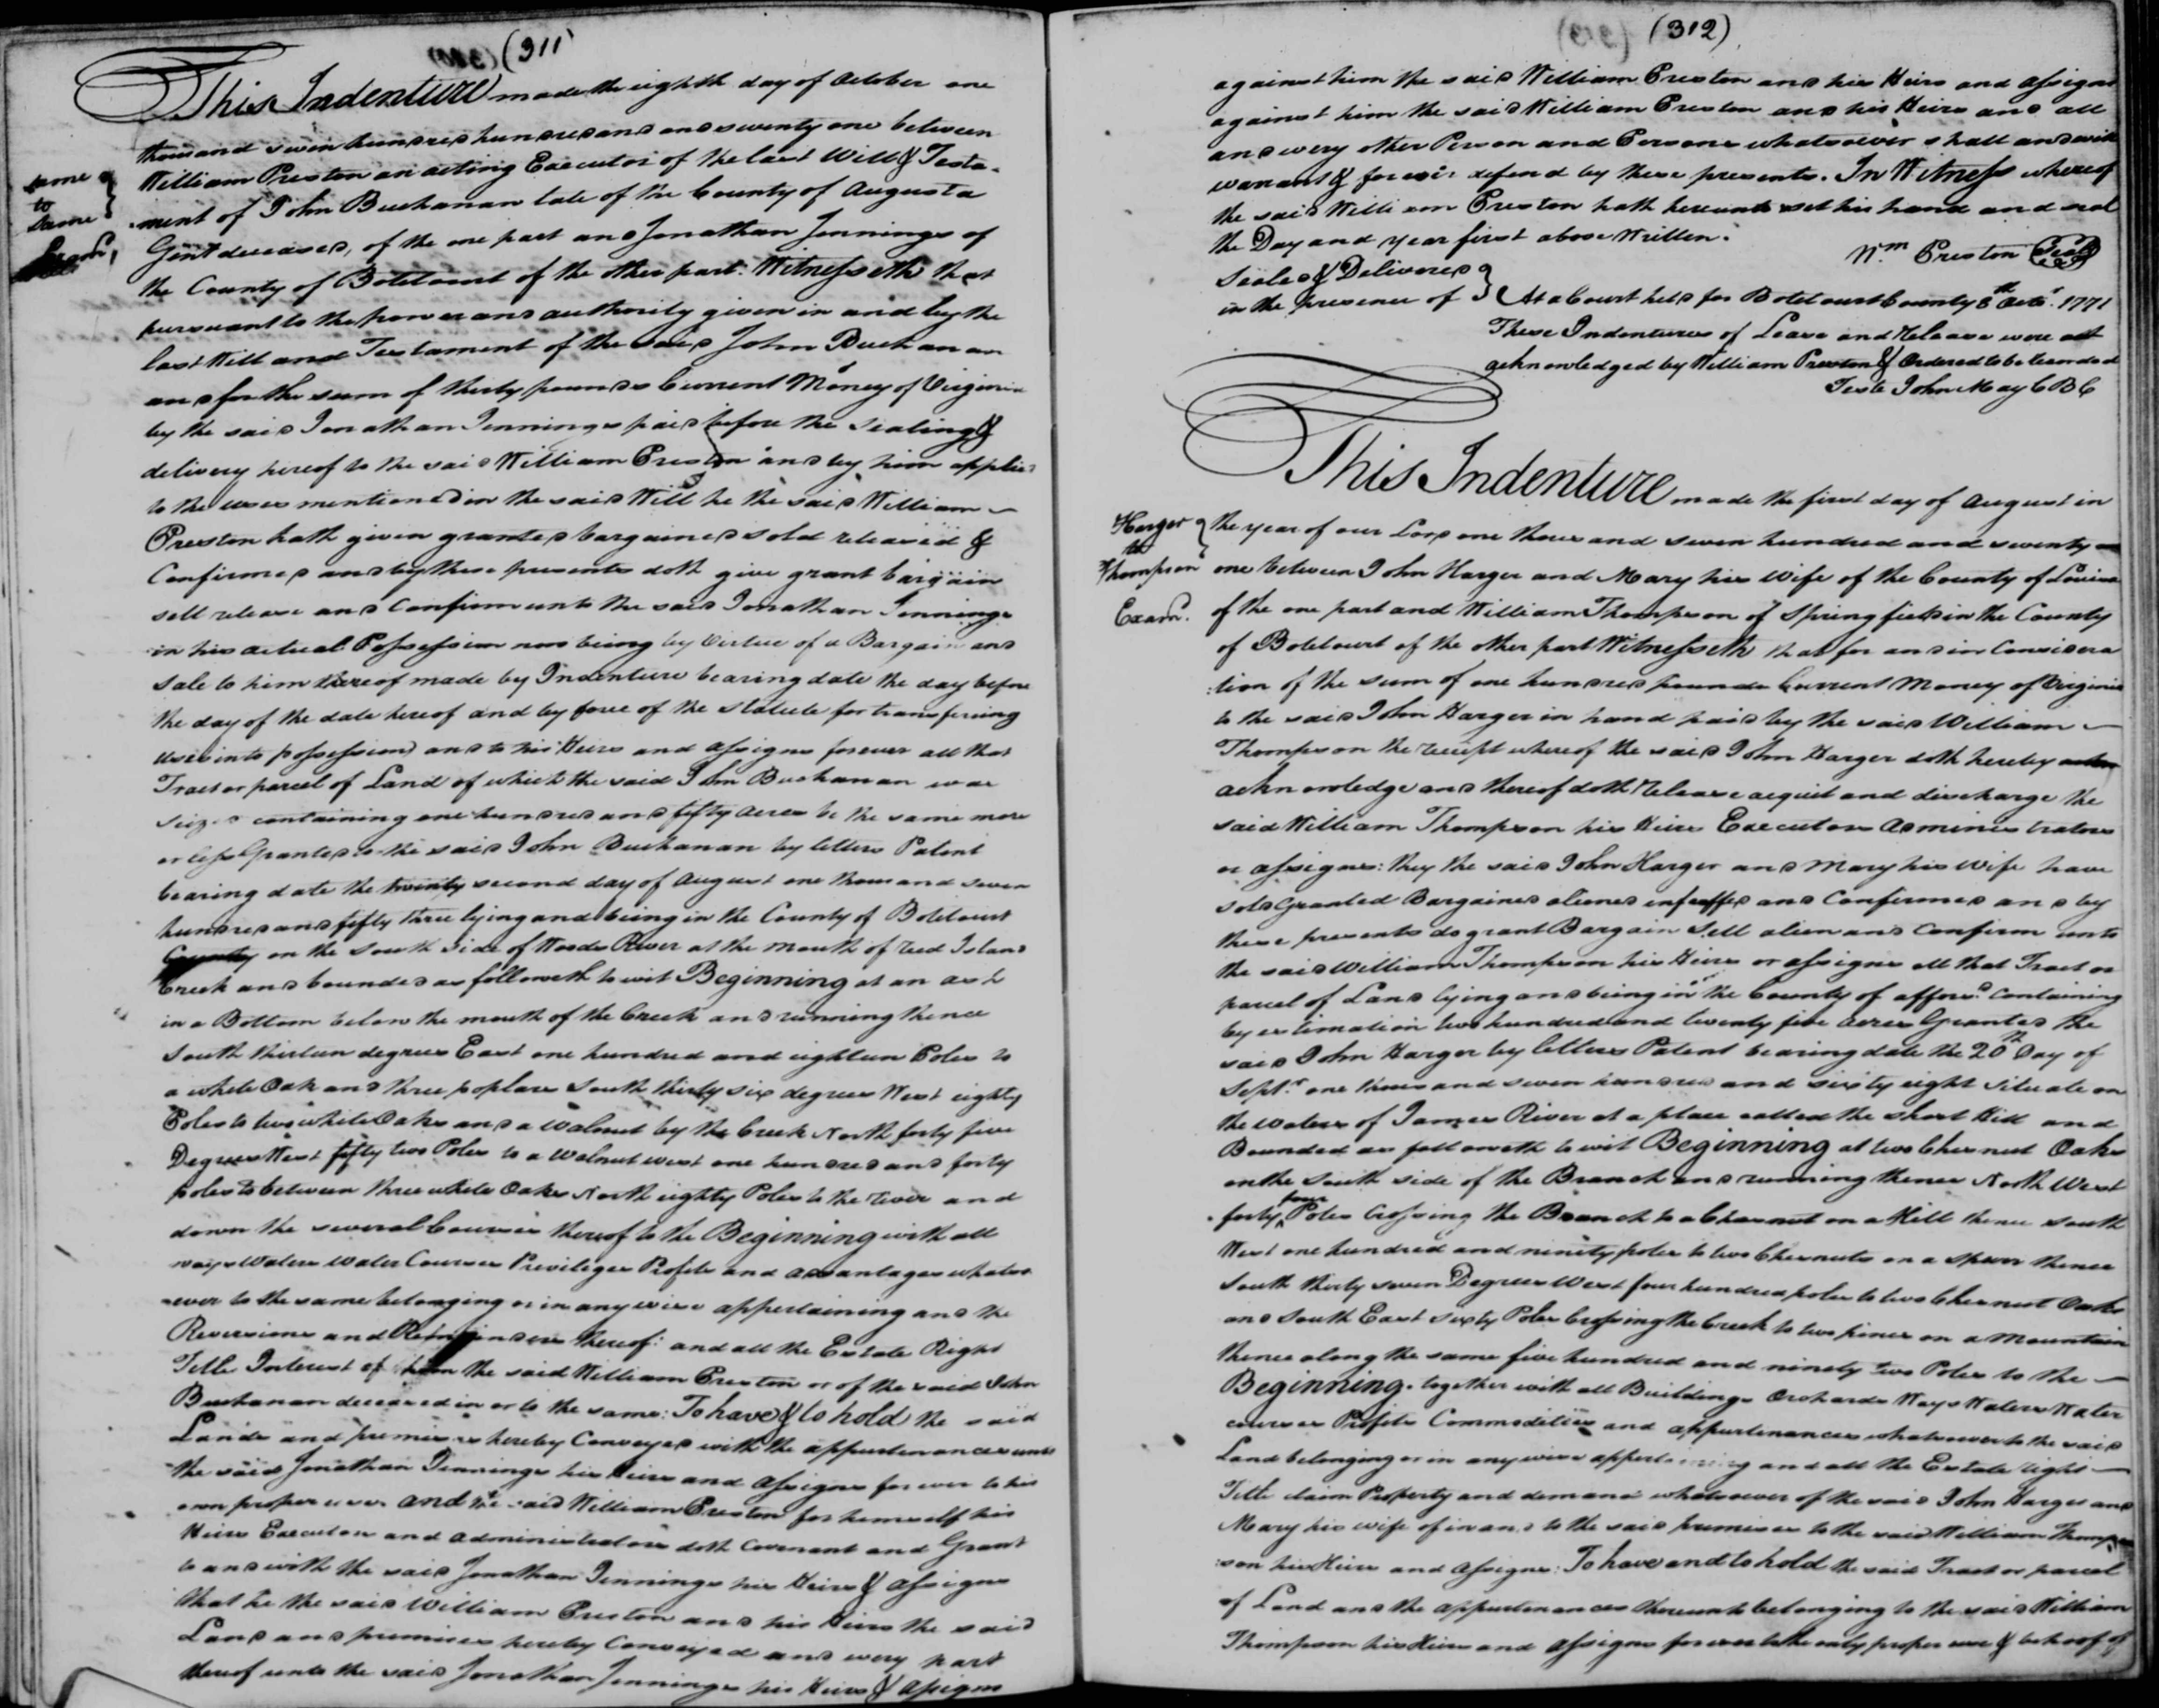 (311)
This Indenture made the eighth day of October one
thousand seven hundred hundred and and seventy one between
William Preston an acting Executor of the last Will & Testa-
ment of John Buchanan late of the County of Augusta
same
to
same
Exam.
Gent deceased, of the one part and Jonathan Jennings of
the County of Botetourt of the other part: Witnesseth that
pursuant to the power and authority given in and by the
last Will and Testament of the said John Buchanan
and for the sum of thirty pounds Current Money of Virginia
by the said Jonathan Jennings paid before the sealing &
delivery hereof to the said William Preston and by him applied
to the uses mentioned in the said Will he the said William
Preston hath given granted bargained sold released &
Confirmed and by these presents doth give grant bargain
sell release and Confirm unto the said Jonathan Jennings
in his actual Possession now being by Virtue of a Bargain and
Sale to him thereof made by Indenture bearing date the day before
the day of the date hereof and by force of the statute for transfering
uses into possession) and to his Heirs and assigns forever all that
Tract or parcel of Land of which the said John Buchanan was
seized containing one hundred and fifty acres be the same more
or less Granted to the said John Buchanan by letters Patent
bearing date the twenty second day of August one thousand seven
hundred and fifty three lying and being in the County of Botetourt
County on the South Side of Woods River at the mouth of Reed Island
Creek and bounded as followeth to wit Beginning at an ash
in a Bottom below the mouth of the Creek and running thence
South thirteen degrees East one hundred and eighteen Poles to
a white Oak and three poplars South thirty six degrees West eighty
Poles to two white Oaks and a Walnut by the Creek North forty five
Degrees West fifty two Poles to a Walnut west one hundred and forty
poles to between three white Oaks North eighty Poles to the River and
down the several Courses thereof to the Beginning with all
ways Waters Water Courses Privileges Profits and advantages whatso
-ever to the same belonging or in any wise appertaining and the
Reversions and Remainders thereof: and all the Estate Right
Title Interest of him the said William Preston or of the said John
Buchanan deceased in or to the same: To have & to hold the said
Lands and premises hereby Conveyed with the appurtenances unto
the said Jonathan Jennings his Heirs and Assigns for ever to his
own proper use. And the said William Preston for himself his
Heirs Executors and administrators doth Covenant and Grant
to and with the said Jonathan Jennings his Heirs & Assigns
that he the said William Preston and his Heirs the said
Land and premises hereby Conveyed and every part
thereof unto the said Jonathan Jennings his Heirs & Assigns
(312)
against him the said William Preston and his Heirs and assigns
against him the said William Preston and his Heirs and all
and every other Person and Persons whatsoever shall and will
warrant & for ever defend by these presents. In Witness whereof
the said William Preston hath hereunto set his hand and seal
the Day and year first above Written.
Wm Preston Seal
Sealed & Delivered
in the presence of
At a Court held for Botetourt County 8th Octr. 1771
These Indentures of Lease and Release were
acknowledged by William Preston & Ordered to be Recorded
Teste John May C B C
This Indenture made the first day of August in
Harger
to
Thompson
Exam.
the year of our Lord one thousand seven hundred and seventy
one between John Harger and Mary his Wife of the County of Louisa
of the one part and William Thompson of Springfield in the County
of Botetourt of the other part Witnesseth that for and in Considera
:tion of the sum of one hundred pounds Current Money of Virginia
to the said John Harger in hand paid by the said William
Thompson the receipt whereof the said John Harger doth hereby
acknowledge and thereof doth release acquit and discharge the
said William Thompson his Heirs Executors Administrators
or assigns: they the said John Harger and Mary his Wife have
sold Granted Bargained aliened infeoffed and Confirmed and by
these presents do grant Bargain Sell alien and Confirm unto
the said William Thompson his Heirs or assigns all that Tract or
parcel of Land lying and being in the County of afforsd. containing
by estimation two hundred and twenty five acres Granted the
said John Harger by letters Patent bearing date the 20th Day of
Septr. one thousand seven hundred and sixty eight situate on
the waters of James River at a place called the short Hill and
Bounded as followeth to wit Beginning at two Chesnut Oaks
on the South side of the Branch and running thence North West
forty four Poles Crossing the Branch to a Chesnut on a Hill thence South
West one hundred and ninety poles to two Chesnuts on a Spurr thence
South thirty seven Degrees West four hundred poles to two Chesnut Oaks
and South East sixty Poles Crossing the Creek to two pines on a Mountain
thence along the same five hundred and ninety two Poles to the
Beginning. together with all Buildings Orchards Ways Waters Water
courses Profits Commodities and appurtenances whatsoever to the said
Land belonging or in any wise appertaining and all the Estate right
Title claim Property and demand whatsoever of the said John Harger and
Mary his wife of in and to the said premises to the said William Thomp
:son his Heirs and Assigns: To have and to hold the said Tract or parcel
of Land and the appurtenances thereunto belonging to the said William
Thompson his Heirs and Assigns forever to the only proper use & behoof of